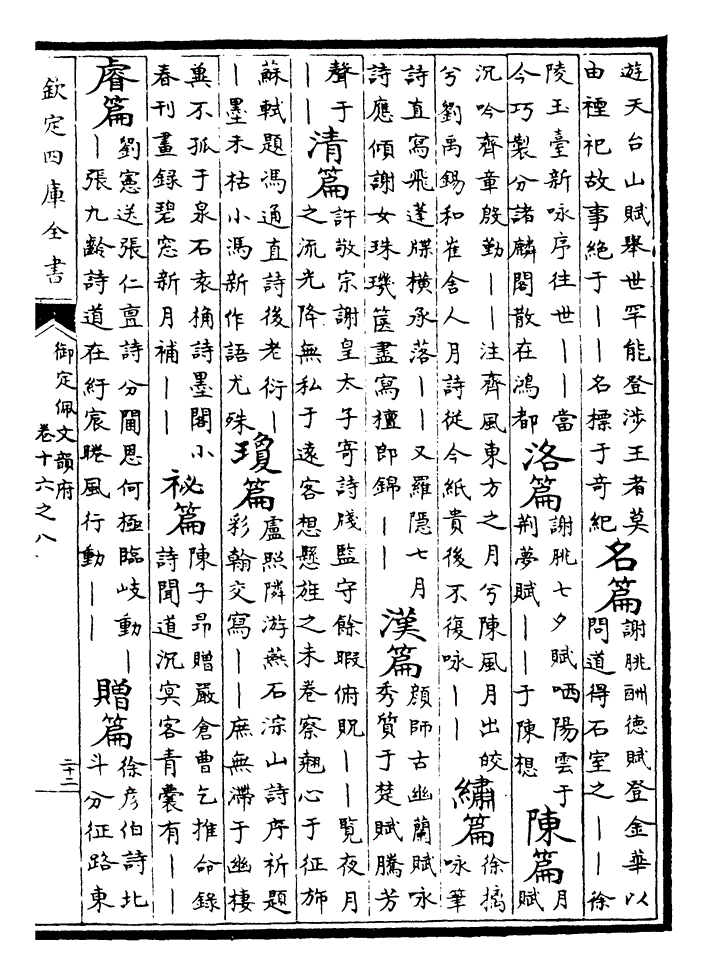 遊天台山賦舉世罕能登涉王者莫
由禋祀故事絶于｜｜名標于奇紀
名篇
謝朓酬德賦登金華以
問道得石室之｜｜徐
陵玉臺新咏序往世｜｜當
今巧製分諸麟閣散在鴻都
洛篇
謝朓七夕賦哂陽雲于
荆夢賦｜｜于陳想
陳篇
月
賦
沉吟齊章殷勤｜｜注齊風東方之月兮陳風月出皎
兮劉禹錫和崔舍人月詩從今紙貴後不復咏｜｜
繡篇
徐摛
咏筆
詩直寫飛蓬牒横承落｜｜又羅隱七月
詩應傾謝女珠璣篋盡寫檀郎錦｜｜
漢篇
顔師古幽蘭賦咏
秀質于楚賦騰芳
聲于
｜｜
清篇
許敬宗謝皇太子寄詩牋監守餘暇俯貺｜｜覧夜月
之流光降無私于遠客想懸旌之未卷察翹心于征斾
蘇軾題馮通直詩後老衍｜
｜墨未枯小馮新作語尤殊
瓊篇
盧照隣游燕石淙山詩序祈題
彩翰交寫｜｜庶無滯于幽棲
興不孤于泉石袁桷詩墨閣小
春刊畫録碧窓新月補｜｜
祕篇
陳子昻贈嚴倉曹乞推命録
詩聞道沉冥客青囊有｜｜
睿篇
劉憲送張仁亶詩分閫恩何極臨岐動｜
｜張九齡詩道在紆宸睠風行動｜｜
贈篇
徐彦伯詩北
斗分征路東
欽定四庫全書
御定佩文韻府
卷十六之八
二十二